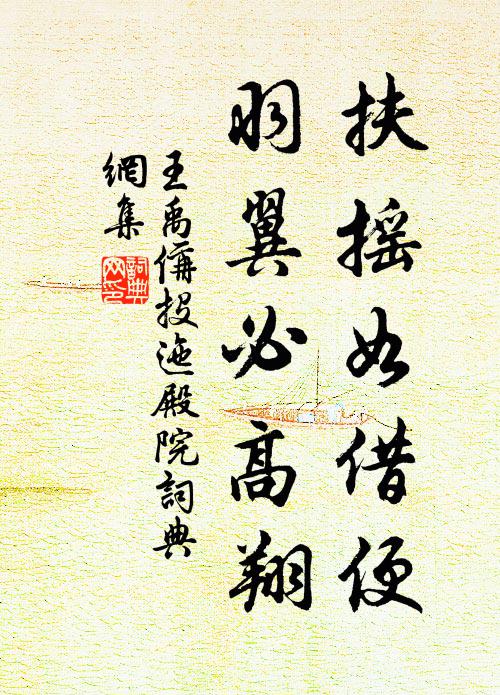 扶摇如借便
羽翼必高翔
王禹偁投迤殿院詞典
網集
詞典网印